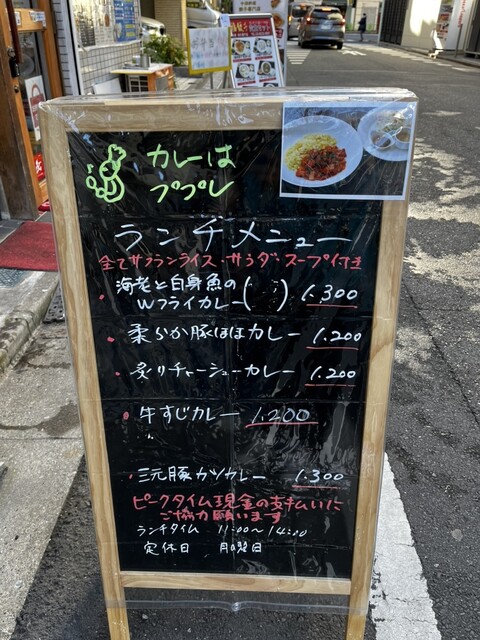 カレーは
ププレ
ランチメニュー
全てサフランライス・サラダ・スープ付き
・海老と白身魚の
Wフライカレー( ) 1.300
・柔らか豚ほほカレー 1.200
・炙りチャーシューカレー 1.200
・牛すじカレー 1.200
・三元豚カツカレー 1.300
ピークタイム現金の支払いに
ご協力願います
ランチタイム 11:00～14:00
定休日 月曜日